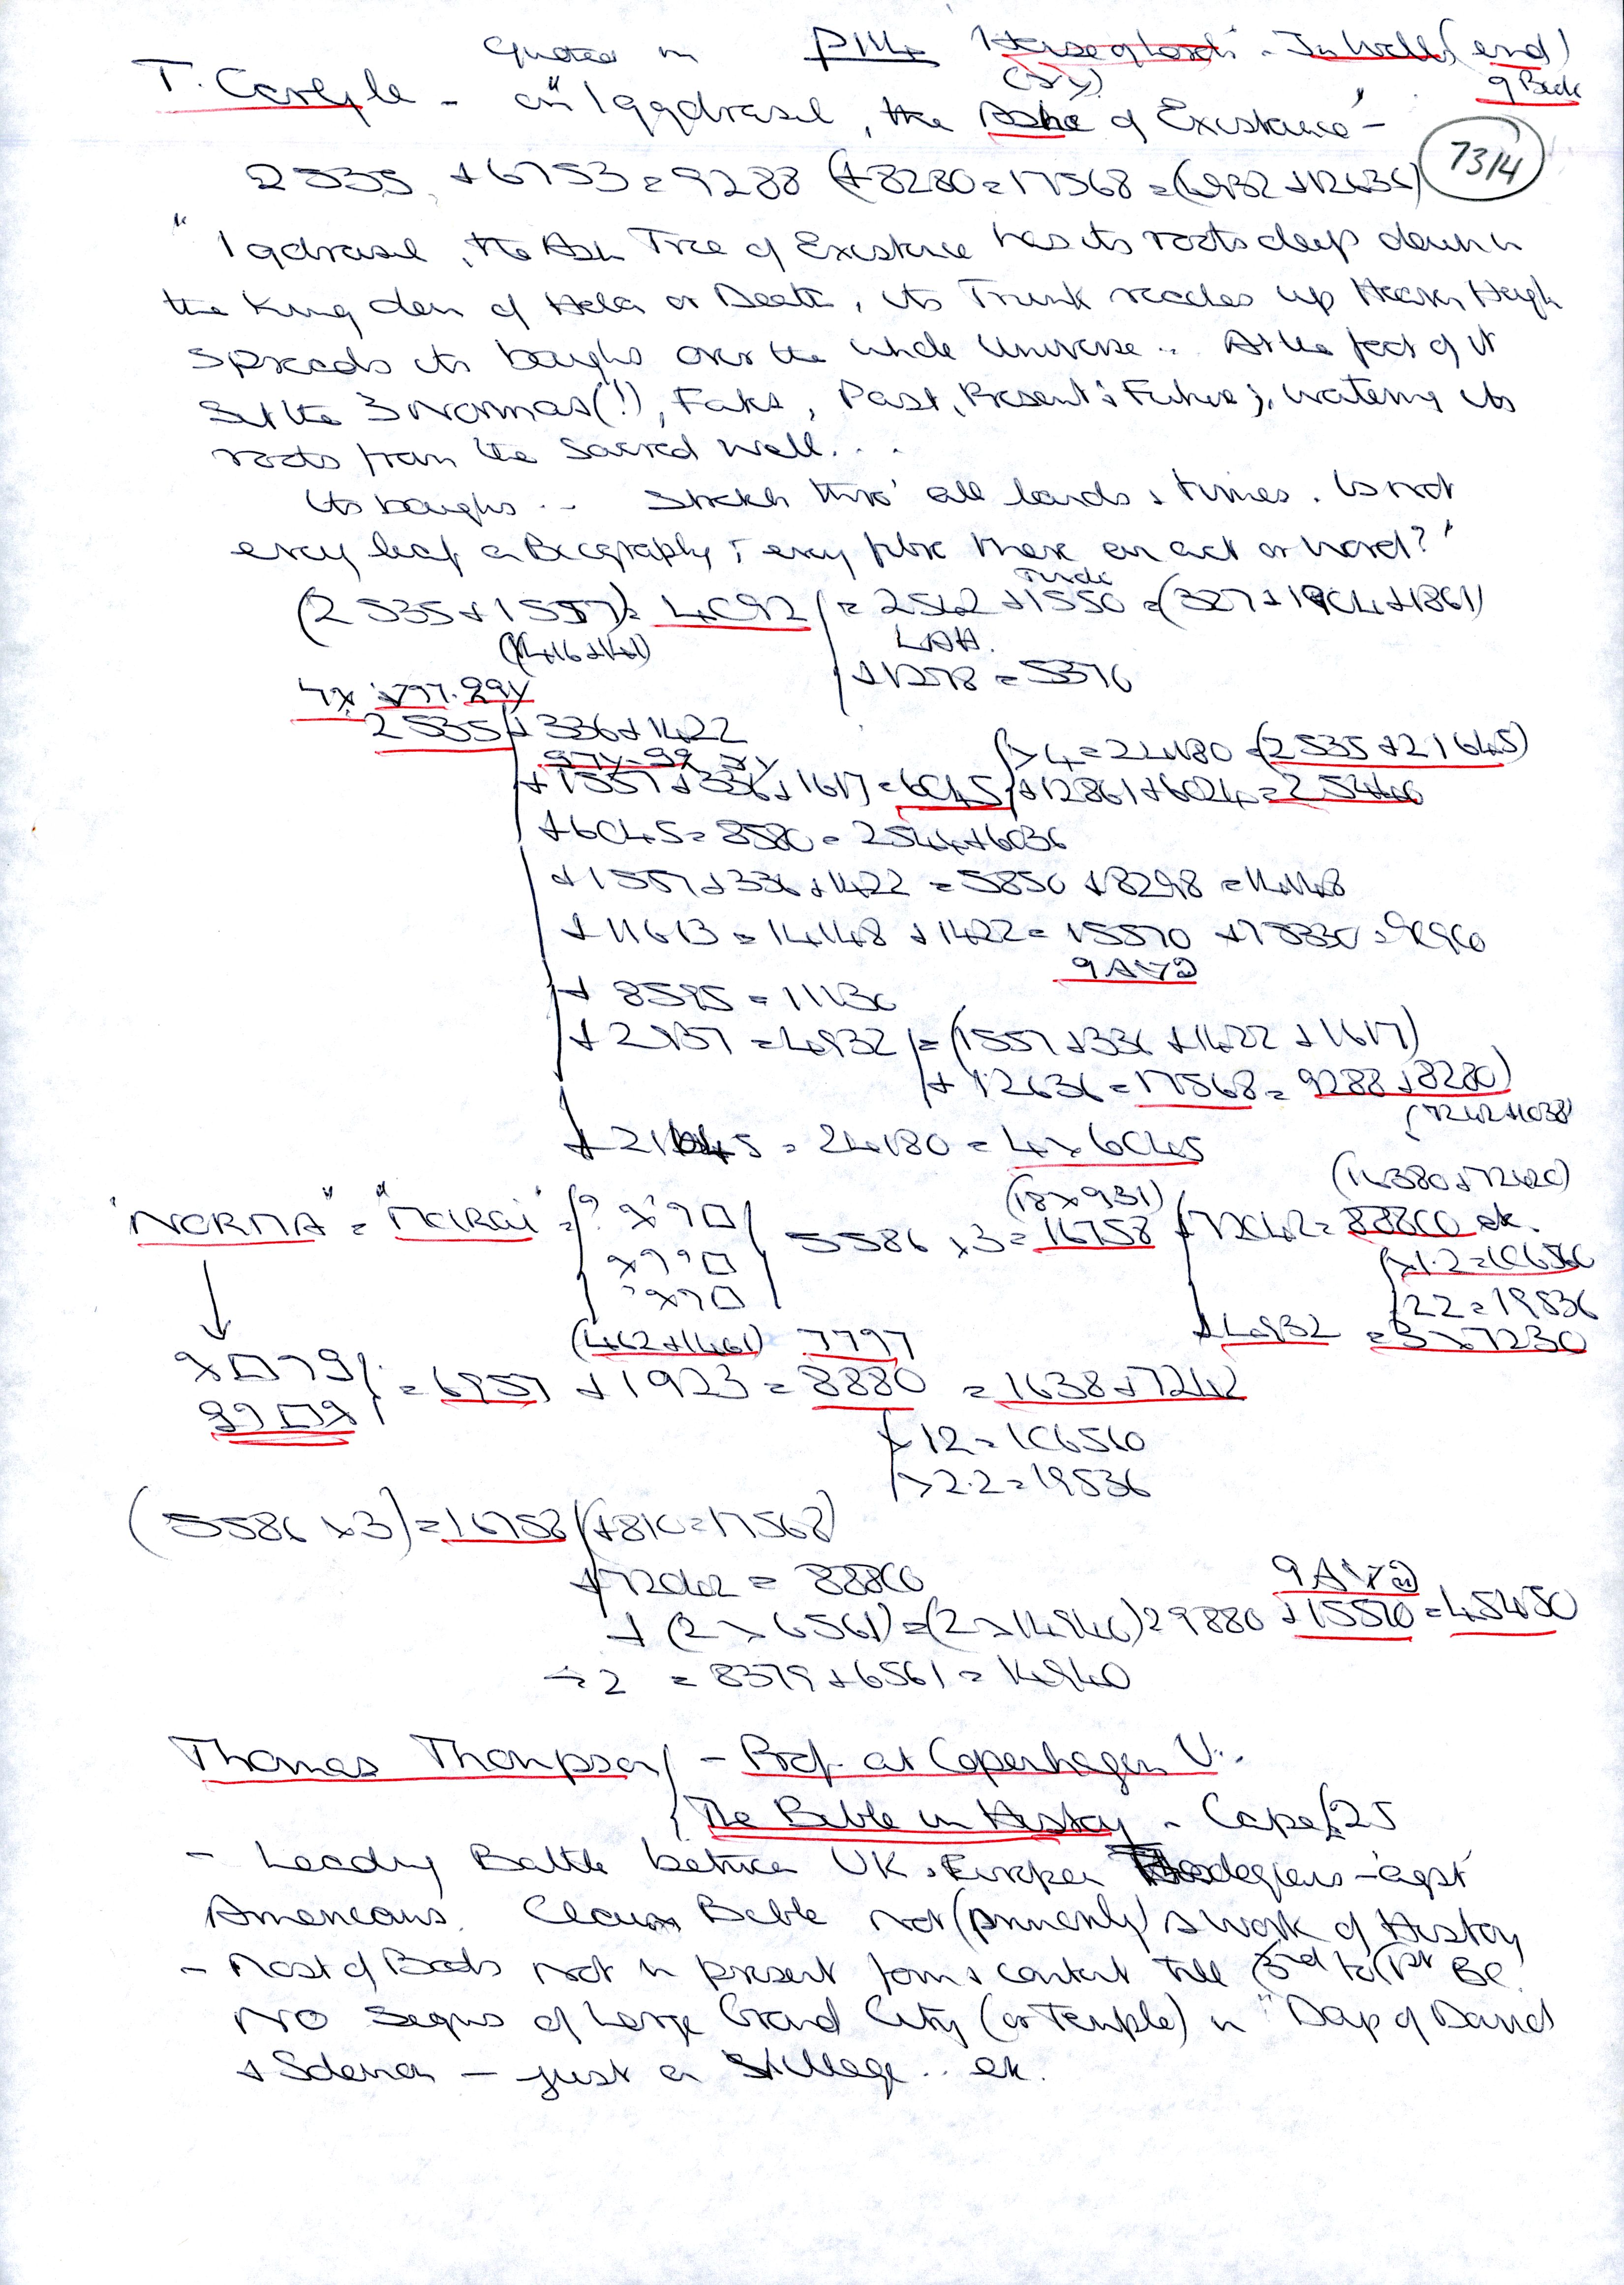 Quoted in P114 "House of Lords" - J. Wells (end)
T. Carlyle - on "Iggdrasil, the Ashe of Existence" -
of Book
7314
2535 + 6753 = 9288 (+8280 = 17568 = (4932 + 12636)
"Igdrasil, the Ash Tree of Existence has its roots deep down in
the Kingdom of Hela or Death, its Trunk reaches up Heaven High
spreads its boughs over the whole Universe... At the foot of it
Sit the 3 Normas(!), Fates, Past, Present & Future; watering its
roots from the Sacred Well....
Its boughs ... Stretch thro' all lands & times. Is not
every leaf a Biography, & every fibre there an act or word?"
(2535 + 1557) = 4092 = 2542 + 1550 = (327 + 1904 + 1861)
(1416 + 141) LAH.
+ 1278 = 5370
2535 + 336 + 1422
x 4 = 24180 = (2535 + 21645)
+ 1557 + 336 + 1617 = 6045 + 12861 + 6024 = 25440
+ 6045 = 8580 = 2544 + 6036
+ 1557 + 336 + 1422 = 5850 + 8298 = 14148
+ 11613 = 14148 + 1422 = 15570 + 75330 = 90900
+ 8595 = 11130
+ 2397 = 4932 = (1557 + 336 + 1422 + 1617)
+ 12636 = 17568 = 9288 + 8280)
(7242 + 1038)
+ 21645 = 24180 = 4 x 6045
(18 x 931) (16380 + 72420)
"NORMA" = "MOIRAI" = 5586 x 3 = 16758 + 72042 = 88800 etc.
x 1.2 = 106560
22 = 19536
+ 4932 = 3 x 7230
(462 + 1461) 7797
= 6957 + 1923 = 8880 = 1638 + 7242
x 12 = 106560
x 2.2 = 19536
(5586 x 3) = 16758 (+ 810 = 17568)
+ 72042 = 88800
+ (2 x 6561) = (2 x 14940) 29880 + 15570 = 45450
÷ 2 = 8379 + 6561 = 14940
Thomas Thompson - Prof. at Copenhagen U.
The Bible in History - Cape £25
- Leading Battle between UK & European Theologians - agst
Americans. Claims Bible not (primarily) a work of History
- Most of Books not in present form & content till (3rd to (1st BC.
NO Signs of Large Grand City (or Temple) in "Days of David
& Solomon - just a Village .. etc.